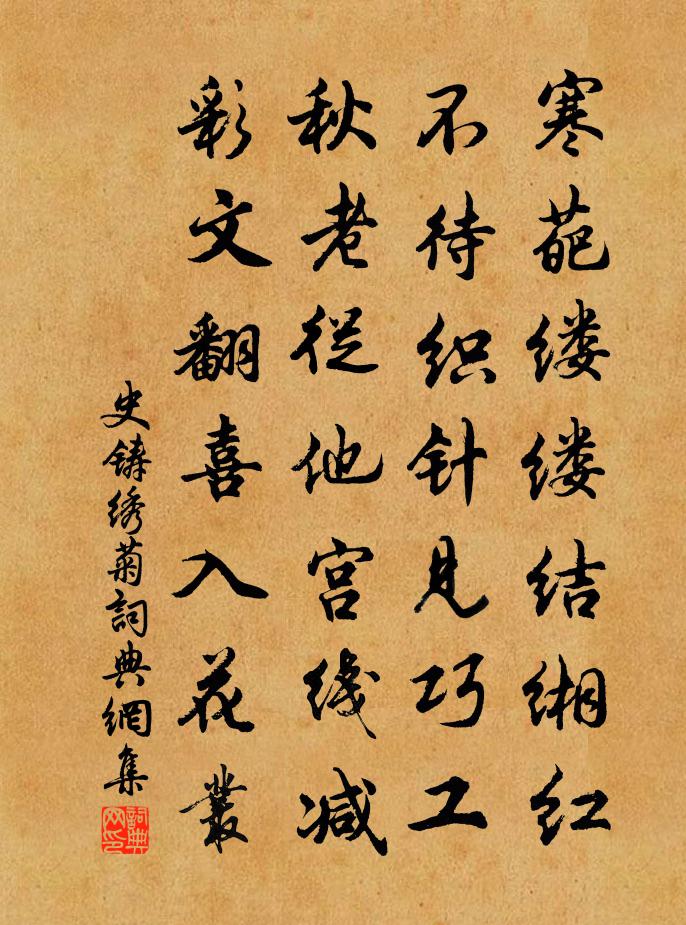 寒葩缕缕结缃红
不待织针见巧工
秋老従他宫线减
彩文翻喜入花叢
史铸绣菊詞典網集
詞典网印